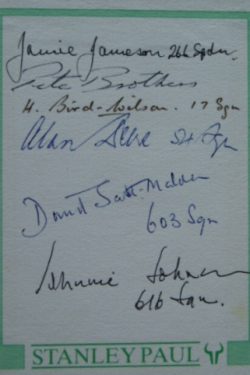 Jamie Jameson 266 Sqdn.
Pete Brothers
H. Bird-Wilson. 17 Sqn
Alan Deere 54 Sqn
David Scott-Malden
603 Sqn
Johnnie Johnson
616 Sqn.
STANLEY PAUL